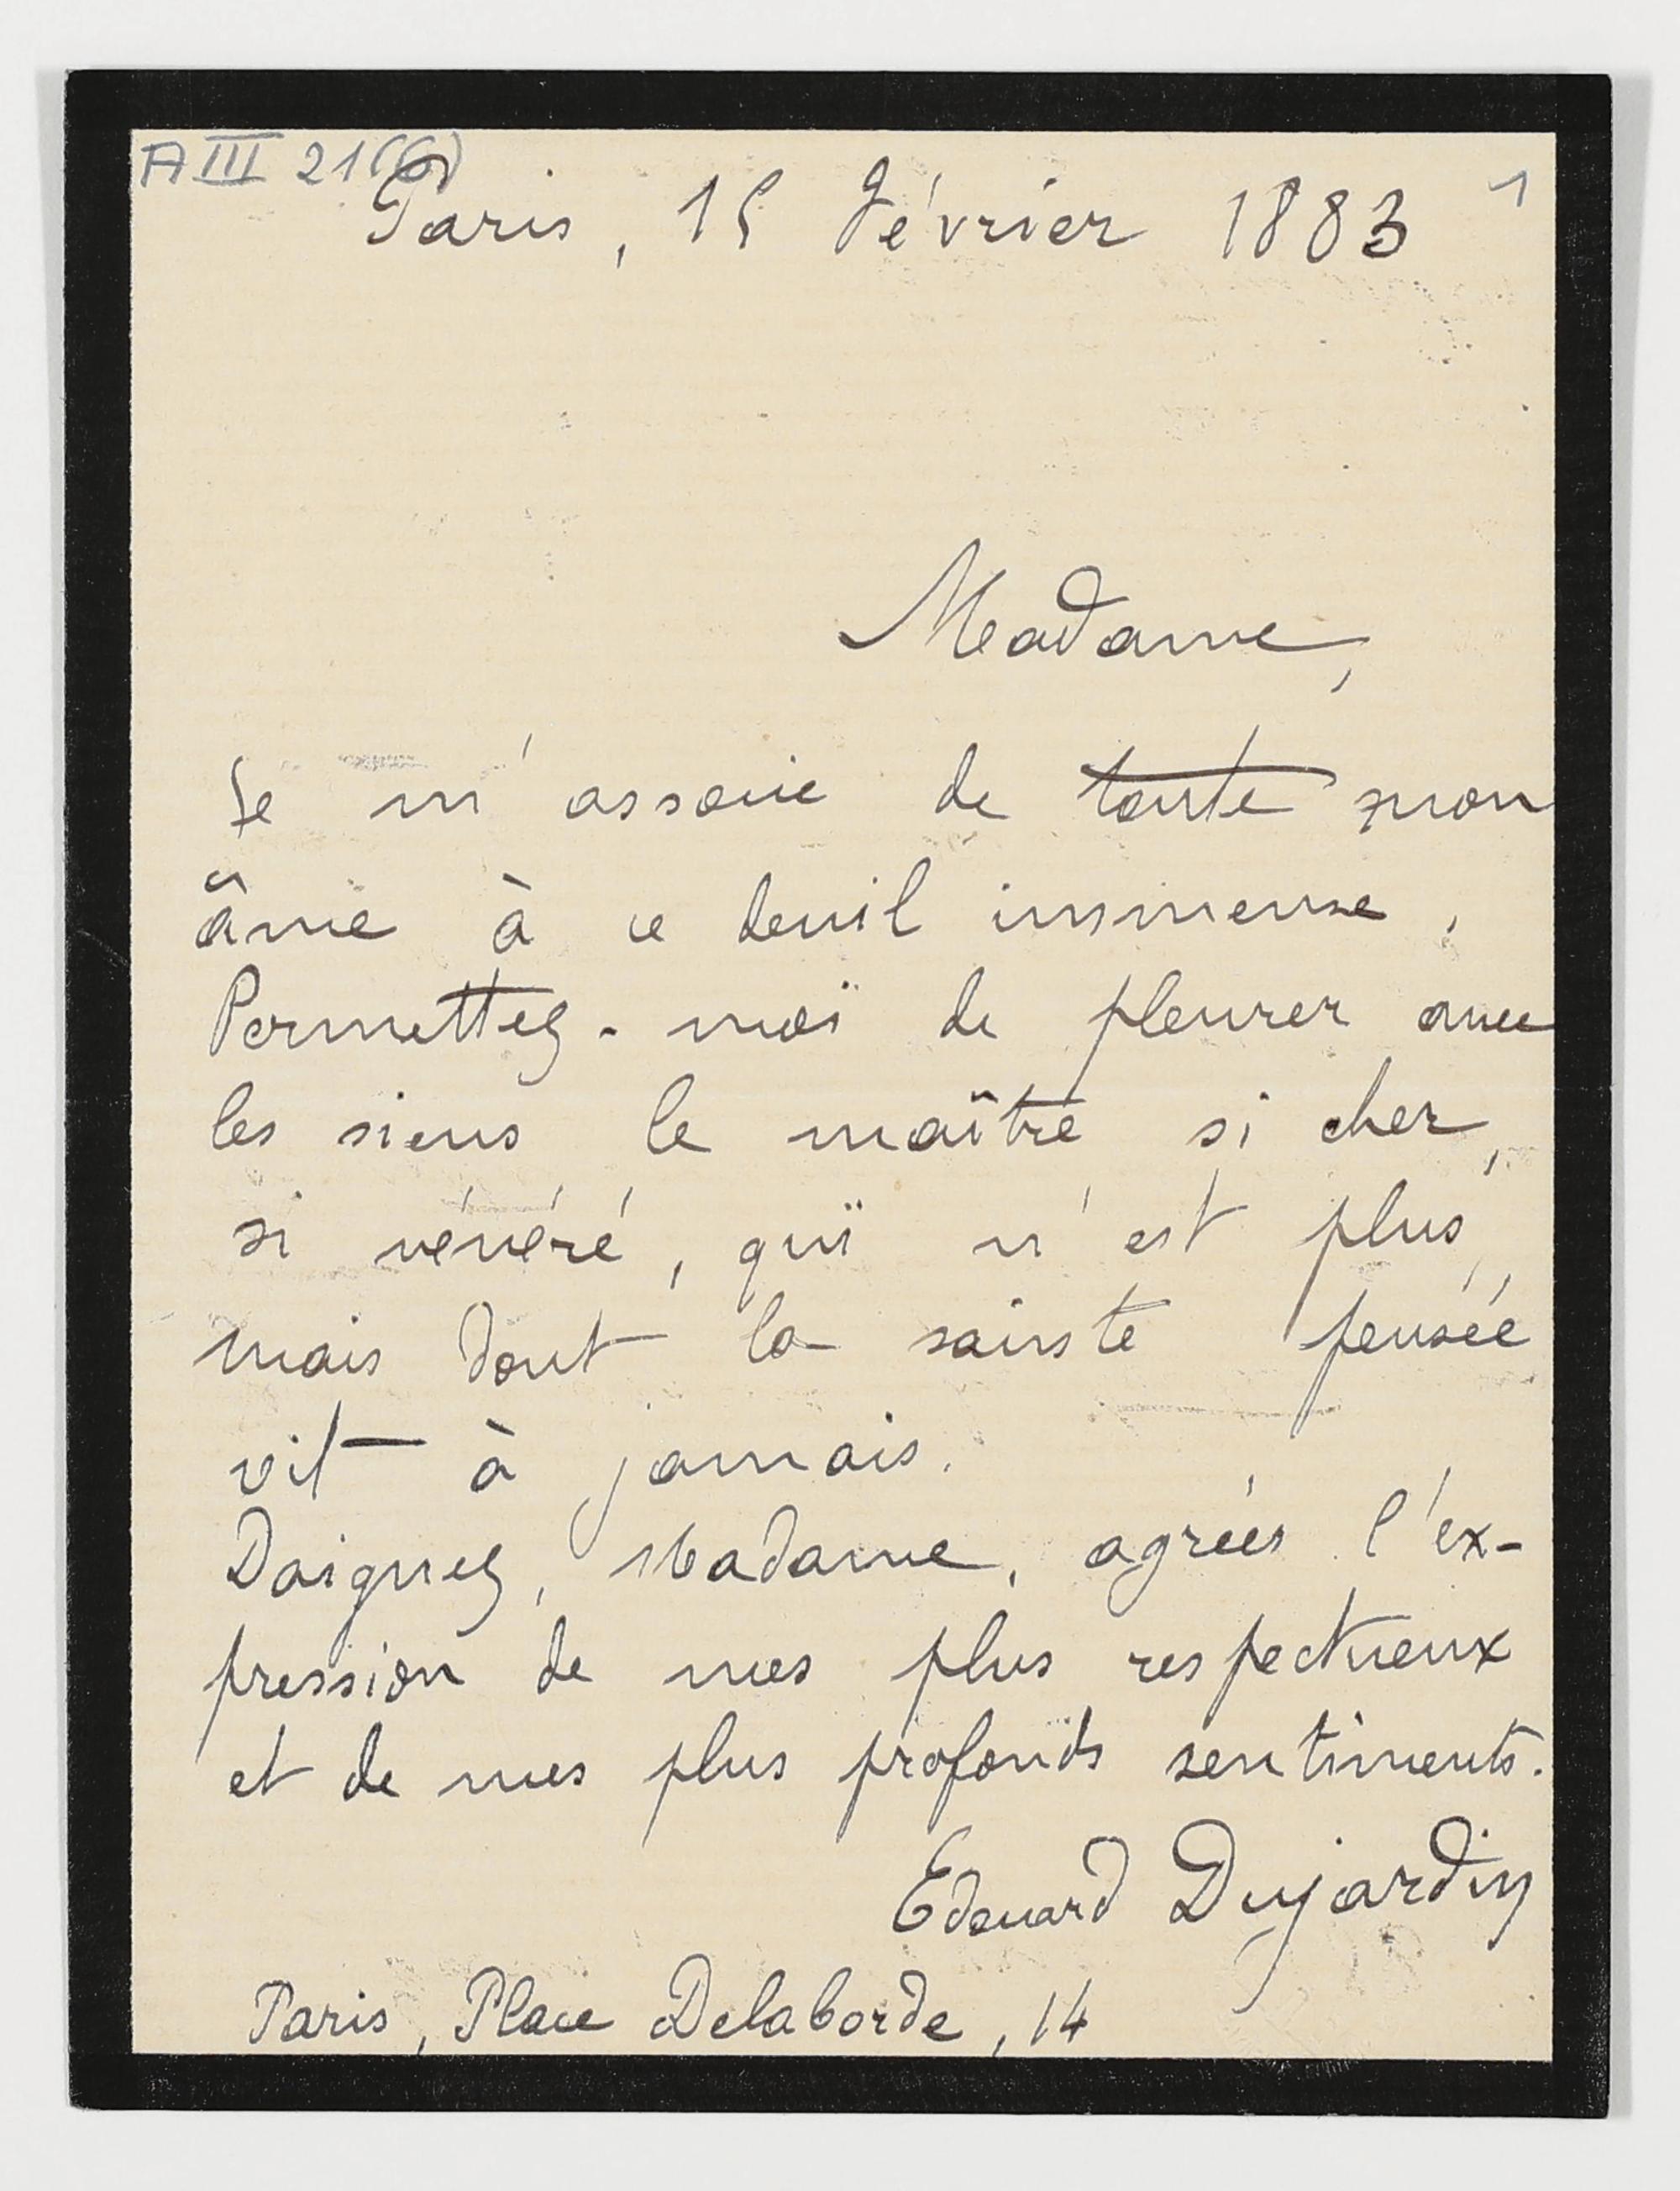 A III 21 (6)
1
Paris, 15 Février 1883
Madame,
Je m'associe de toute mon
âme à ce deuil immense.
Permettez-moi de pleurer avec
les siens le maître si cher,
si vénéré, qui n'est plus,
mais dont la sainte pensée
vit à jamais.
Daignez, Madame, agréer l'ex-
pression de mes plus respectueux
et de mes plus profonds sentiments.
Edouard Dujardin
Paris, Place Delaborde, 14